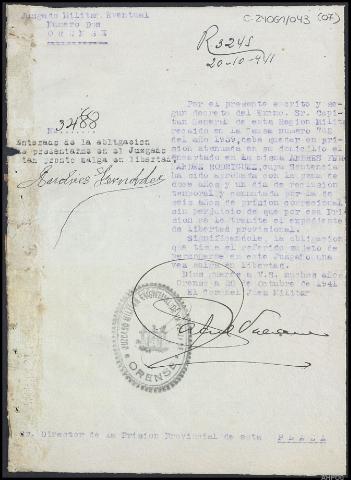 Juzgado Militar Eventual
Numero Dos
O R E N S E
C-24061/043 (07)
R 3245
20-10-941
Nº 3488
Enterado de la obligacion
de presentarme en el Juzgado
tan pronto salga en libertad.
Andres Fernandez
Por el presente escrito y se-
gun decreto del Excmo. Sr. Capi-
tan General de esta Region Milita
recaido en la Causa nº 7
del año 1939, debe quedar en pri-
sion atenuada en su domicilio el
encartado en la misma ANDRES FER-
NANDEZ RODRIGUEZ, cuya Sentencia
ha sido aprobada con la pena de
doce años y un dia de reclusion
temporal y conmutada por la de
seis años de prision correccional
sin perjuicio de que por esa Prision
se le tramite el expediente
de libertad provisional.
Significandole, la obligacion
que tiene el referido sujeto de
personarse en este Juzgado una
vez salga en libertad.
Dios guarde a V.S. muchos años
Orense a 20 de Octubre de 1941
El Coronel Juez Militar
JUZGADO MILITAR EVENTUAL
ORENSE
Sr. Director de la Prision Provincial de esta P L A Z A